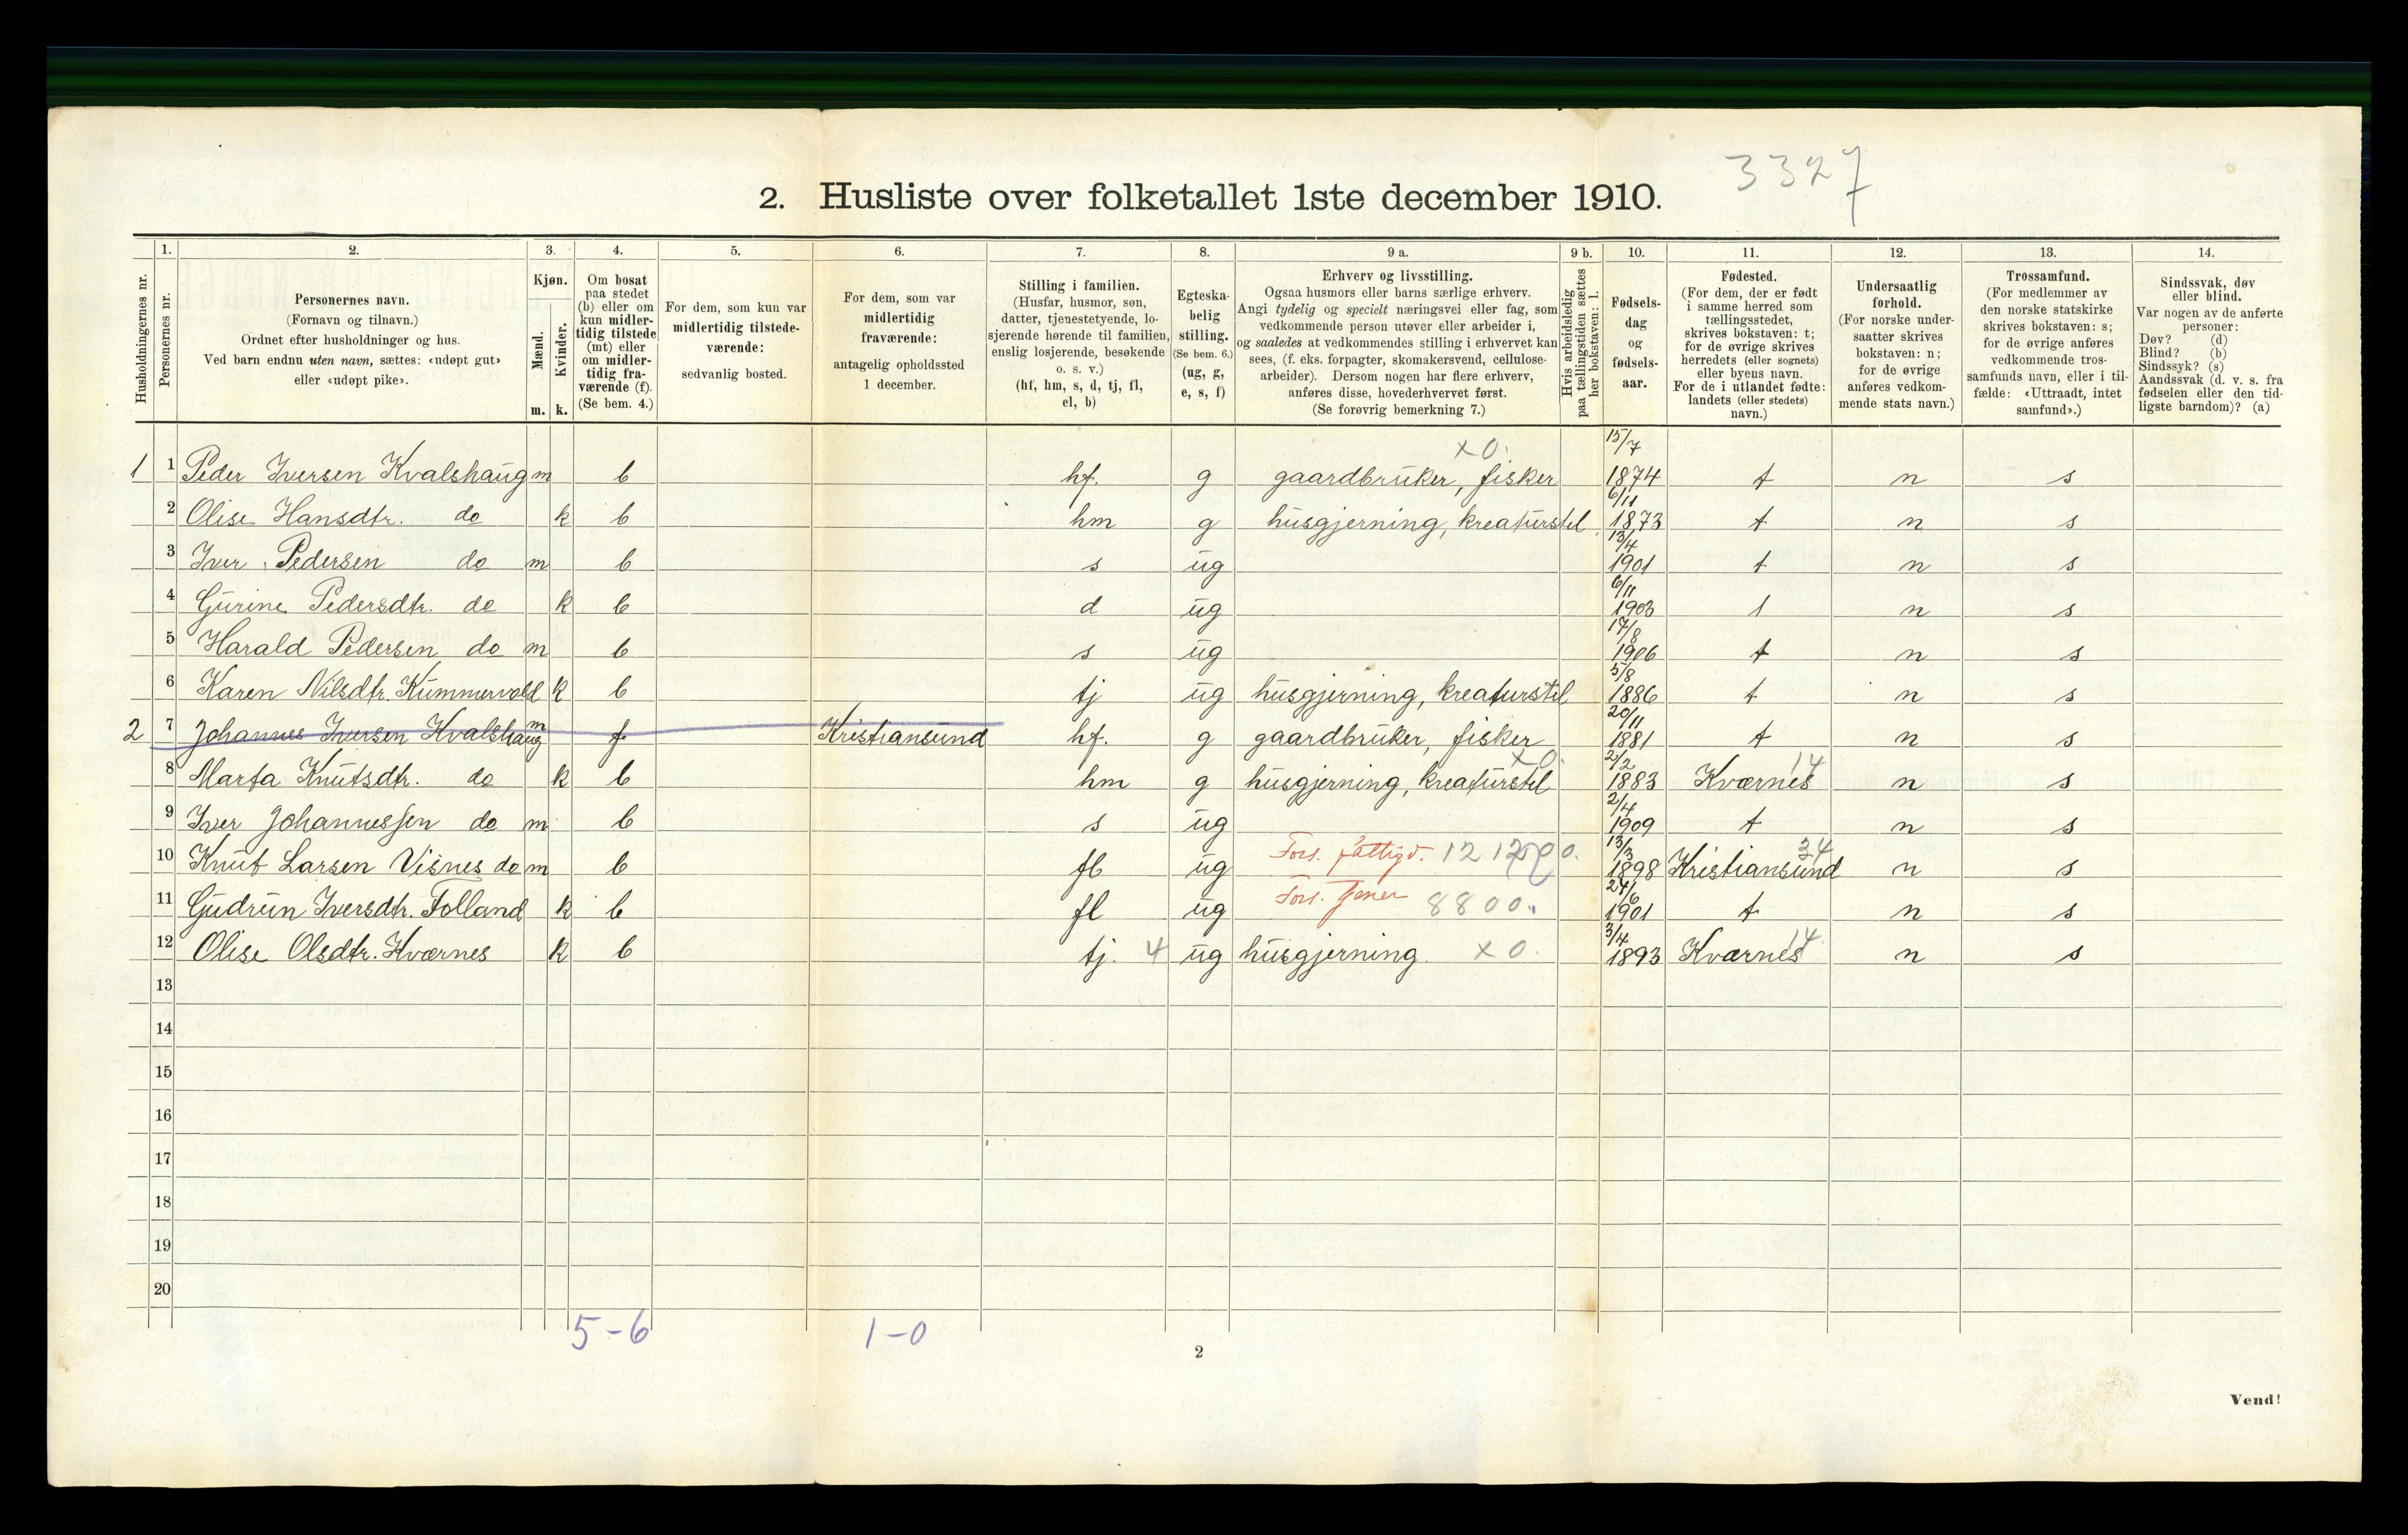 3327
2. Husliste over folketallet 1ste december 1910.
Husholdningernes nr.
1.
Personernes nr.
2.
Personernes navn.
(Fornavn og tilnavn.)
Ordnet efter husholdninger og hus.
Ved barn endnu uten navn, sættes: «udøpt gut»
eller «udøpt pike».
3.
Kjøn.
Mænd.
Kvinder.
m. k.
4.
Om bosat
paa stedet
(b) eller om
kun midler-
tidig tilstede
(mt) eller
om midler-
tidig fra-
værende (f).
(Se bem. 4.)
5.
For dem, som kun var
midlertidig tilstede-
værende:
sedvanlig bosted.
6.
For dem, som var
midlertidig
fraværende:
antagelig opholdssted
1 december.
7.
Stilling i familien.
(Husfar, husmor, søn,
datter, tjenestetyende, lo-
sjerende hørende til familien,
enslig losjerende, besøkende
o. s. v.)
(hf, hm, s, d, tj, fl,
el, b)
8.
Egteska-
belig
stilling.
(Se bem. 6.)
(ug, g,
e, s, f)
9 a.
Erhverv og livsstilling.
Ogsaa husmors eller barns særlige erhverv.
Angi tydelig og specielt næringsvei eller fag, som
vedkommende person utøver eller arbeider i,
og saaledes at vedkommendes stilling i erhvervet kan
sees, (f. eks. forpagter, skomakersvend, cellulose-
arbeider). Dersom nogen har flere erhverv,
anføres disse, hovederhvervet først.
(Se forøvrig bemerkning 7.)
9 b.
Hvis arbeidsledig
paa tællingstiden sættes
her bokstaven: l.
10.
Fødsels-
dag
og
fødsels-
aar.
11.
Fødested.
(For dem, der er født
i samme herred som
tællingsstedet,
skrives bokstaven: t;
for de øvrige skrives
herredets (eller sognets)
eller byens navn.
For de i utlandet fødte:
landets (eller stedets)
navn.)
12.
Undersaatlig
forhold.
(For norske under-
saatter skrives
bokstaven: n;
for de øvrige
anføres vedkom-
mende stats navn.)
13.
Trossamfund.
(For medlemmer av
den norske statskirke
skrives bokstaven: s;
for de øvrige anføres
vedkommende tros-
samfunds navn, eller i til-
fælde: «Uttraadt, intet
samfund».)
14.
Sindssvak, døv
eller blind.
Var nogen av de anførte
personer:
Døv? (d)
Blind? (b)
Sindssyk? (s)
Aandssvak (d. v. s. fra
fødselen eller den tid-
ligste barndom)? (a)
1 1 Peder Iversen Kvalshaug m b hf. g gaardbruker, fisker x0. 15/7 1874 t n s
2 Olise Hansdtr. do k b hm g husgjerning, kreaturstel 6/11 1873 t n s
3 Iver Pedersen do m b s ug 13/4 1901 t n s
4 Gurine Pedersdtr. do k b d ug 6/11 1903 t n s
5 Harald Pedersen do m b s ug 17/8 1906 t n s
6 Karen Nilsdtr. Kummervold k b tj ug husgjerning, kreaturstel 5/8 1886 t n s
2 7 Johannes Iversen Kvalshaug m f Kristiansund hf. g gaardbruker, fisker 20/11 1881 t n s
8 Marta Knutsdtr. do k b hm g husgjerning, kreaturstel x0. 2/2 1883 Kværnes 14 n s
9 Iver Johannessen do m b s ug 2/4 1909 t n s
10 Knut Larsen Visnes do m b fl ug Fors. fattigv. 13/3 1898 Kristiansund 34 n s
11 Gudrun Iversdtr. Folland k b fl ug Fors. 8800. 24/6 1901 t n s
12 Olise Olsdtr. Kværnes k b tj. 4 ug husgjerning. x0. 3/4 1893 Kværnes 14 n s
13
14
15
16
17
18
19
20
5-6 1-0
2
Vend!